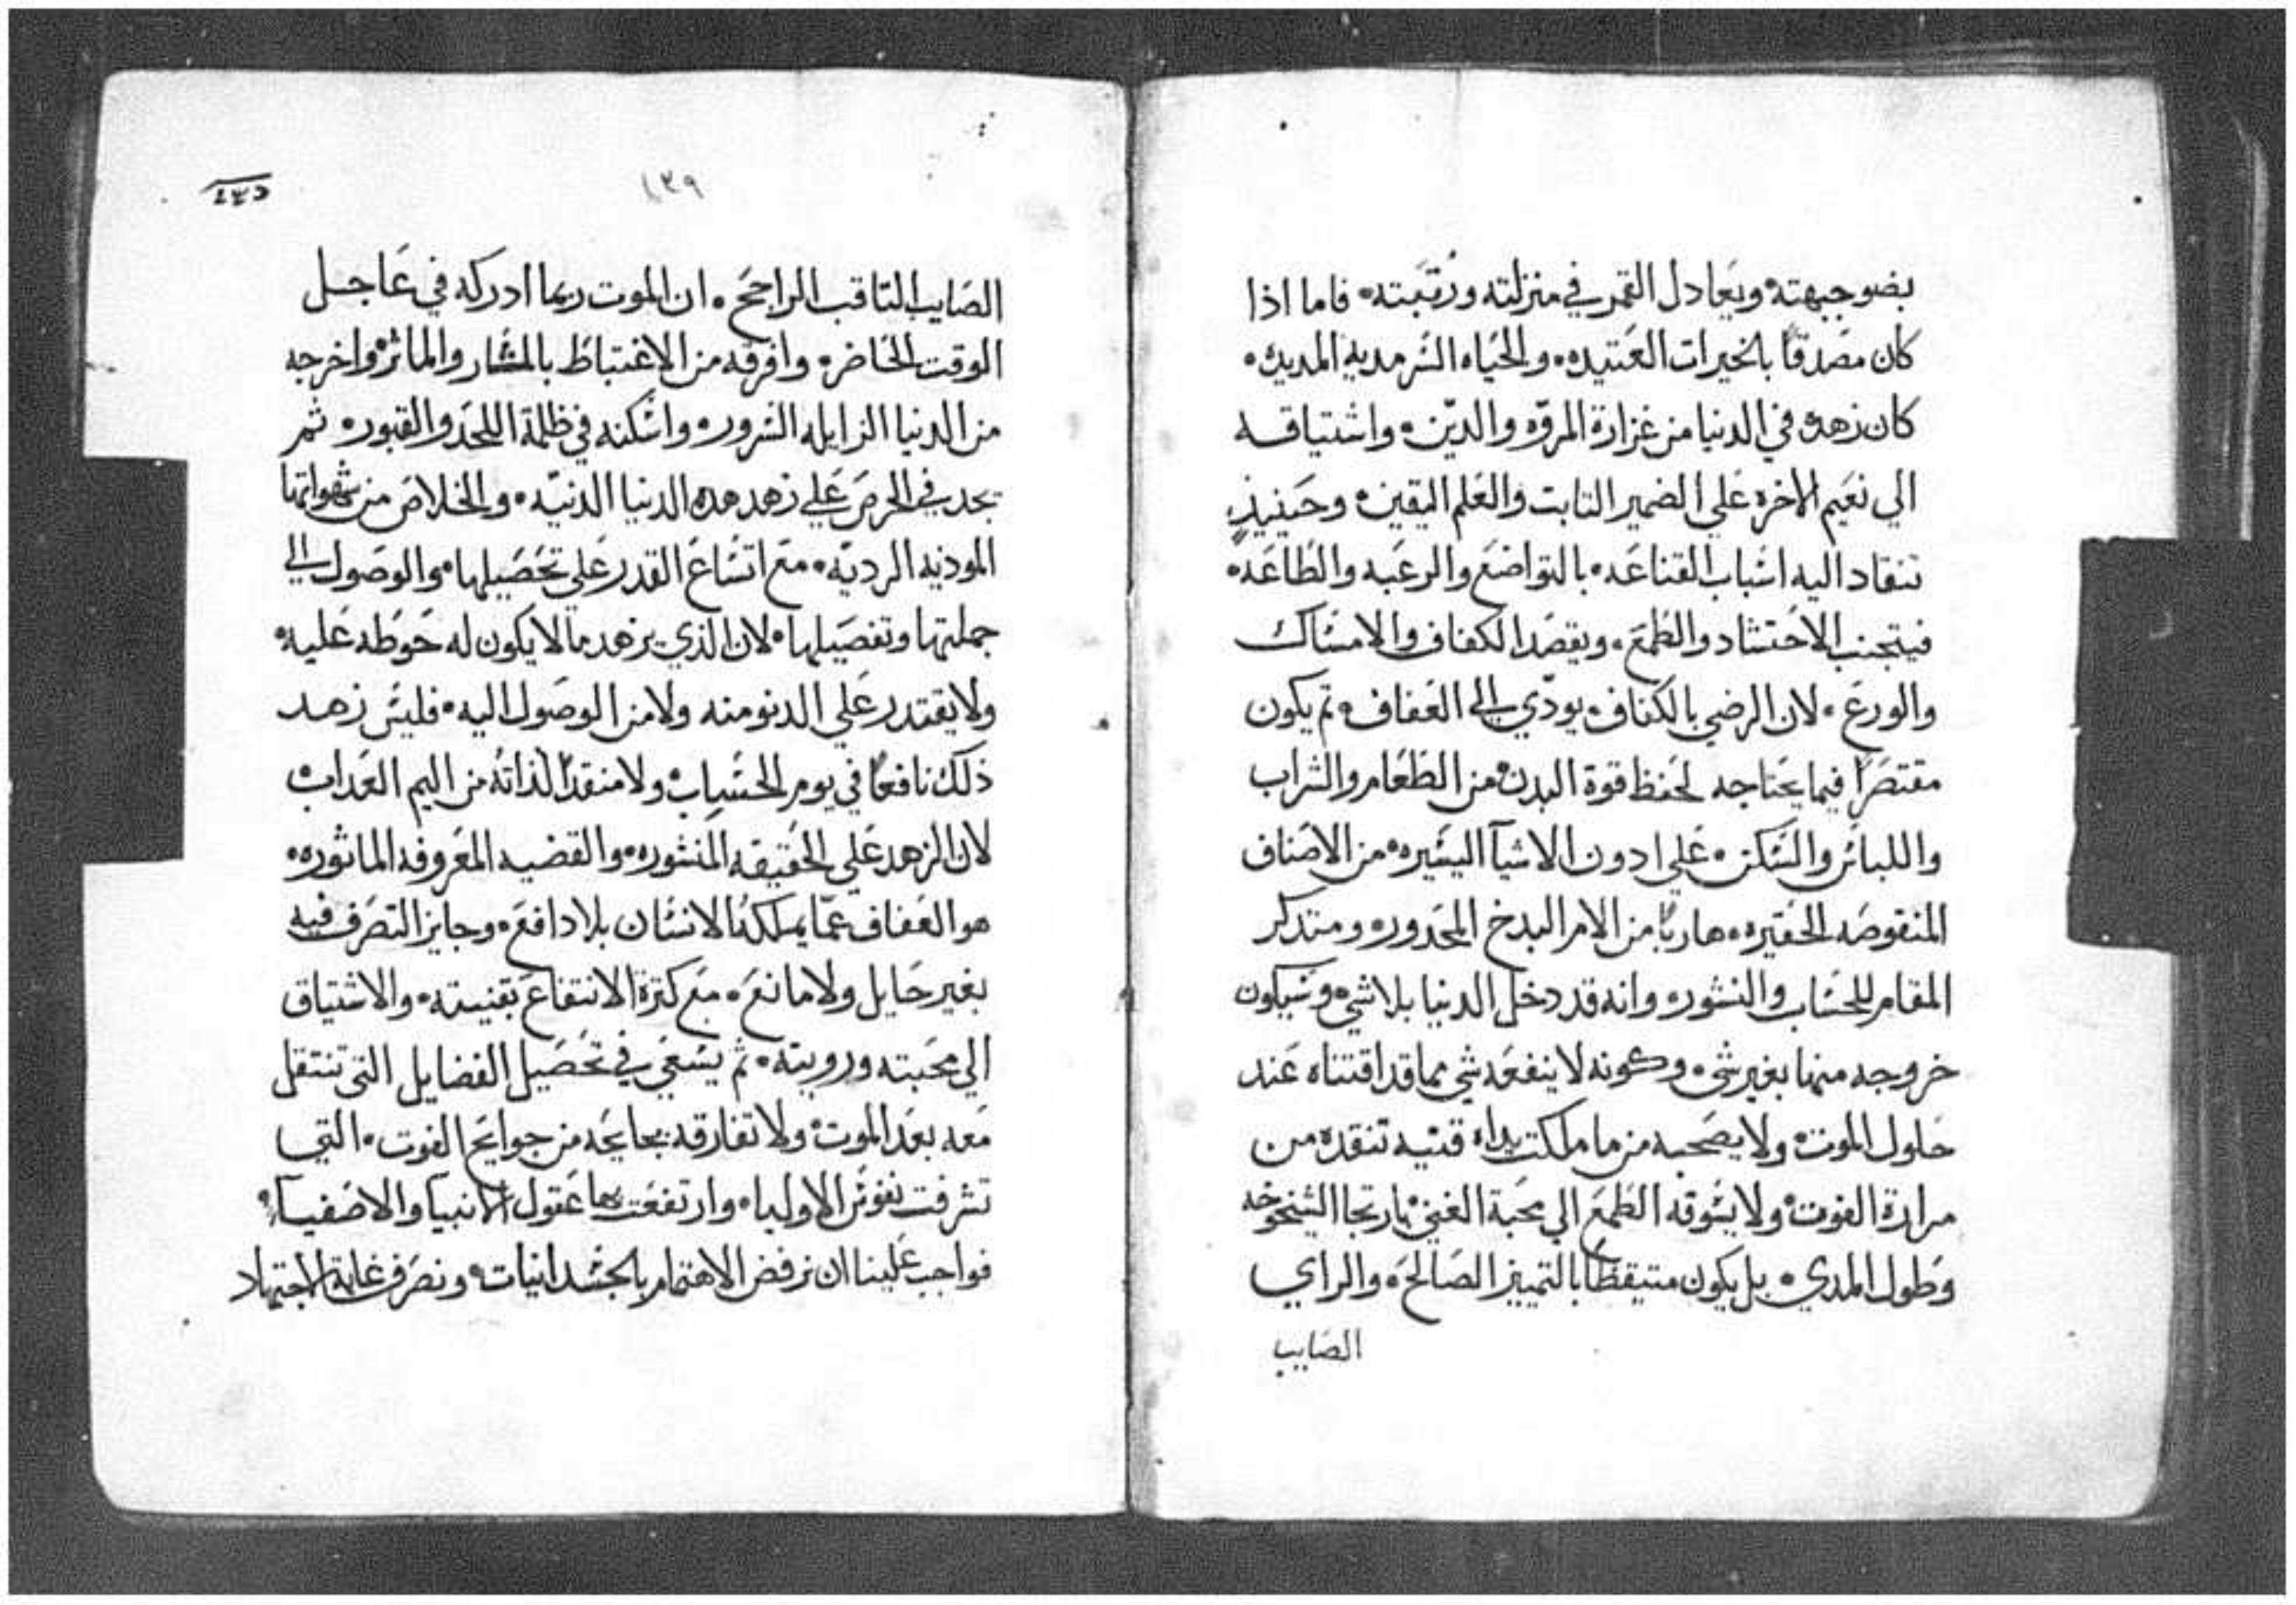 بضو جبهته ويعادل القمر في منزلته ورتبته • فاما اذا
كان مصدقا بالخيرات العتيده • والحياه السرمديه المديده •
كان زهده في الدنيا من غزارة المروّه والدّين • واشتياقه
الي نعيم الاخره علي الضمير التابت والعلم اليقين • وحينيذٍ
تنقاد اليه اسباب القناعه • بالتواضع والرغبه والطاعه •
فيتجنب الاحتشاد والطمع • ويقصد الكفاف والامساك
والورع • لان الرضي بالكفاف يودّي الي العفاف • تم يكون
مقتصرًا فيما يحتاجه لحفظ قوة البدن • من الطعام والشراب
واللباس والسكن • علي ادون الاشيآ اليسيره • من الاصناف
المنقوصه الحقيره • هاربًا من الامر البدخ المحدور • ومتدكر
المقام للحساب والنشور • وانه قد دخل الدنيا بلا شي • وسيكون
خروجه منها بغير شي • وكونه لا ينفعه شي مما قد اقتناه عند
حلول الموت • ولا يصحبه من ما ملكت يداه قنيه تنقده من
مرارة الفوت • ولا يشوقه الطمع الي محبة الغني • بارتجا الشيخوخه
وطول المدي • بل يكون متيقظًا بالتمييز الصالح • والراي
الصايب
١٣٩
٤٣٥
الصايب التاقب الراجح • ان الموت ربما ادركه في عاجل
الوقت الحاضر • وافرقه من الاغتباط بالمسار والماثر • واخرجه
من الدنيا الزايله السرور • واسكنه في ظلمة اللحد والقبور • ثم
يجد في الحرص علي زهد هده الدنيا الدنيّه • والخلاص من شهواتها
المودنيه الرديّه • مع اتساع القدر علي تحصيلها • والوصول الي
جملتها وتفصيلها • لان الذي يزهد ما لا يكون له حوطه عليه •
ولا يقتدر علي الدنو منه ولا من الوصول اليه • فليس زهد
ذلك نافعًا في يوم الحساب • ولا منقدًا لذاته من اليم العداب •
لان الزهد علي الحقيقه المنشوره • والقضيه المعروفه الماثوره •
هو العفاف عمّا يملكه الانسان بلا دافع • وجايز التصرف فيه
بغير حايل ولا مانع • مع كترة الانتفاع بقنيته • والاشتياق
الي محبته ورويته • ثم يسعي في تحصيل الفضايل التي تنتقل
معه بعد الموت • ولا تفارقه بجايحه من جوايح الفوت • التي
تشرفت نفوس الاوليا • وارتفعت بها عقول الانبيا والاصفيآ •
فواجب علينا ان نرفض الاهتمام بالجسدانيات • ونصرف غاية الاجتهاد